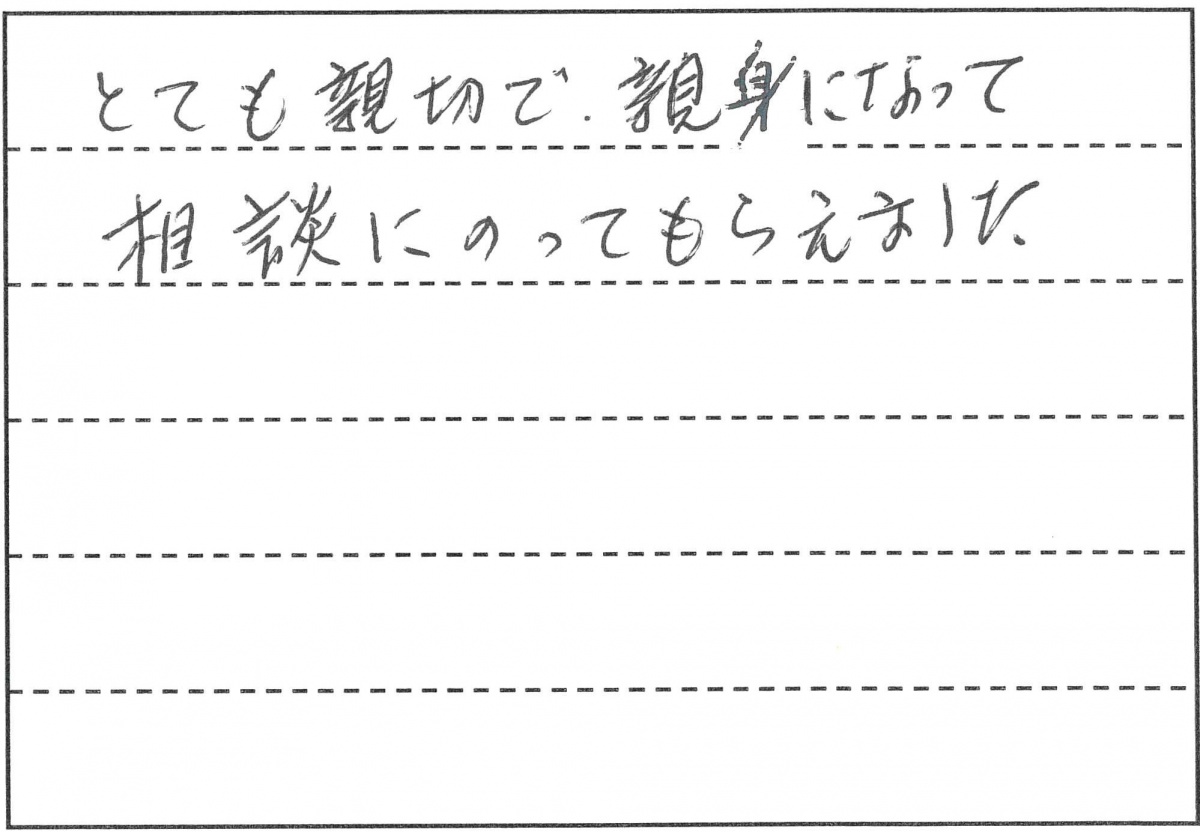 とても親切で、親身になって
相談にのってもらえました。